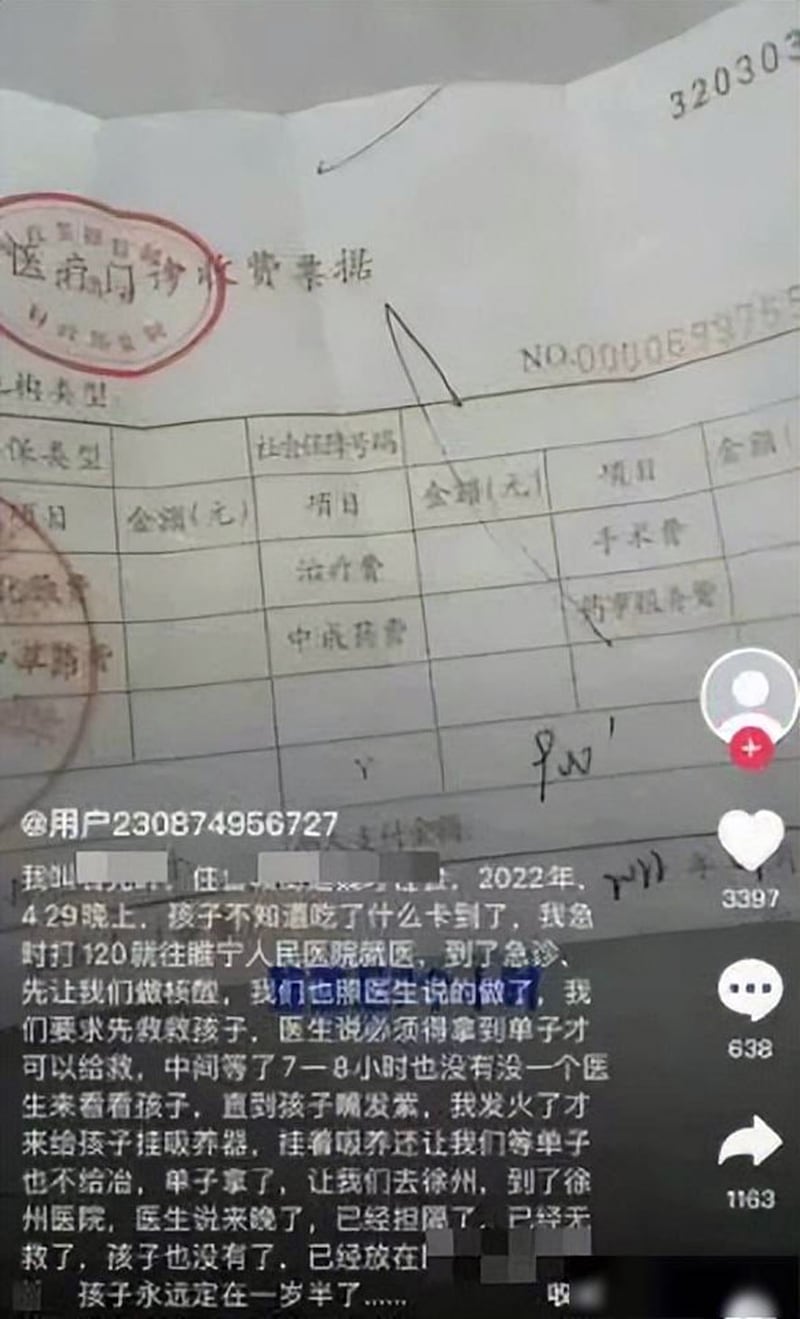 320303
医疗门诊收费票据
NO.0000699755
构类型
保类型 社会保障号码
项目 金额(元) 项目 金额(元) 项目 金额(
化验费 治疗费 手术费
中草药费 中成药费 药事服务费
个人支付金额
@用户230874956727
我叫 住 2022年、
4 29晚上，孩子不知道吃了什么卡到了，我急
时打120就往睢宁人民医院就医，到了急诊、
先让我们做核酸，我们也照医生说的做了，我
们要求先救救孩子，医生说必须得拿到单子才
可以给救，中间等了7一8小时也没有没一个医
生来看看孩子，直到孩子嘴发紫，我发火了才
来给孩子挂吸养器，挂着吸养还让我们等单子
也不给冶，单子拿了，让我们去徐州，到了徐
州医院，医生说来晚了，已经担隔了，已经无
救了，孩子也没有了，已经放在
孩子永远定在一岁半了...... 收
3397
638
1163